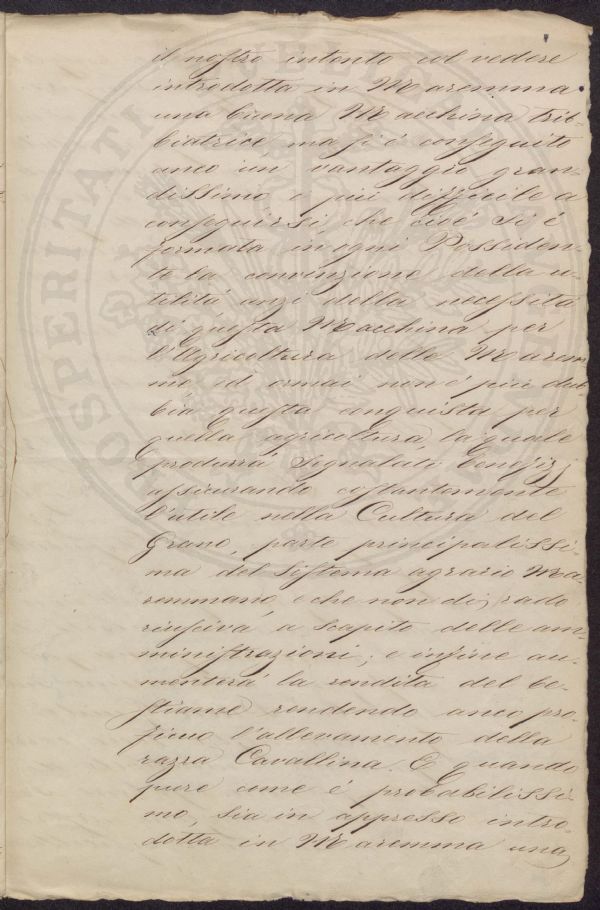 il nostro intento col vedere
introdotta in Maremma
una buona Macchina Treb-
biatrice, ma si è conseguito
anco un vantaggio gran-
dissimo e più difficile a
conseguirsi, che cioè si è
formata in ogni Possiden-
te la convinzione della u-
tilità anzi della necessità
di questa Macchina per
l'Agricoltura della Marem-
ma, ed ormai non è più dub-
bia questa conquista per
quella agricoltura, la quale
produrrà segnalati benefizj
assicurando costantemente
l'utile nella Cultura del
Grano, parte principalissi-
ma del Sistema agrario Ma-
remmano, e che non di rado
riusciva a scapito delle am-
ministrazioni; e infine au-
menterà la rendita del be-
stiame rendendo anco pro-
ficuo l'allevamento della
razza Cavallina. E quando
pure come è probabilissi-
mo, sia in appresso intro-
dotta in Maremma una
PROSPERITATI